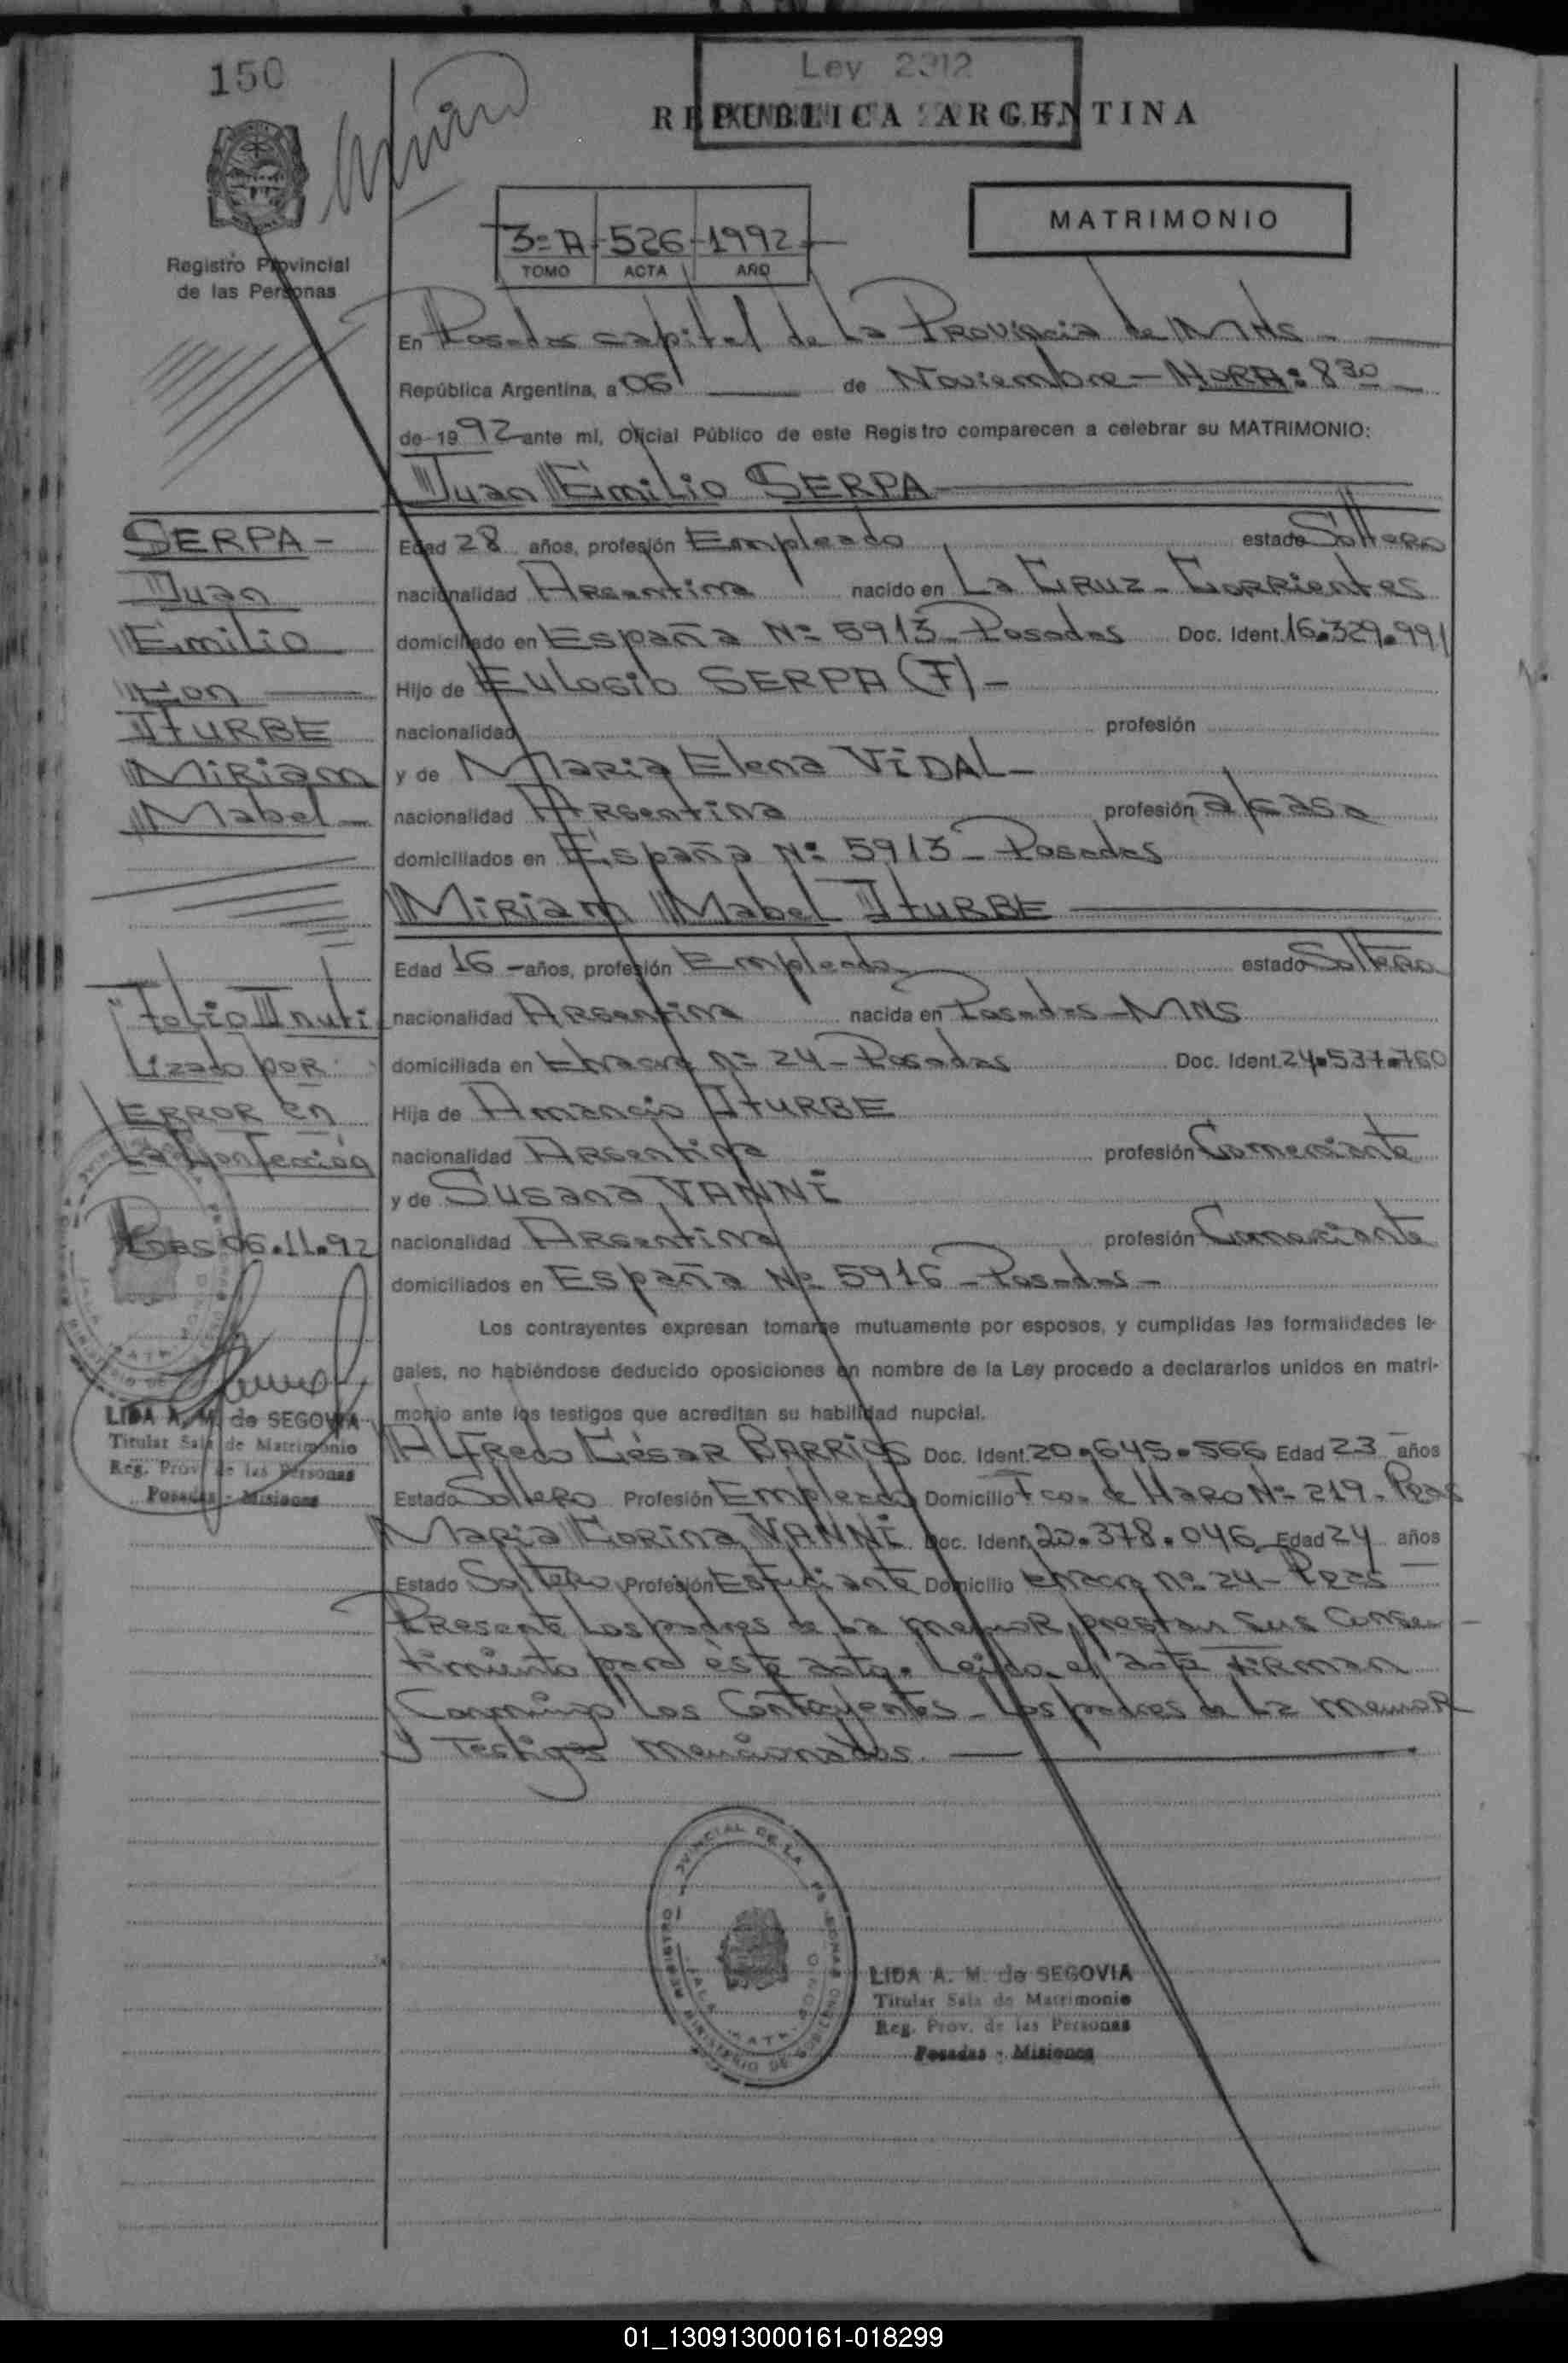 150
Ley 2312
REPUBLICA ARGENTINA
3=A - 526 - 1992
TOMO ACTA AÑO
MATRIMONIO
Registro Provincial
de las Personas
En Posadas capital de La Provincia de MNS
República Argentina, a 06 de Noviembre - HORA: 8 30
de 1992 ante mí, Oficial Público de este Registro comparecen a celebrar su MATRIMONIO:
Juan Emilio SERPA
SERPA -
Juan
Emilio
Con
ITURBE
Miriam
Mabel
Edad 28 años, profesión Empleado estado Soltero
nacionalidad Argentina nacido en La Cruz - Corrientes
domiciliado en España Nº 5913 - Posadas Doc. Ident. 16.329.991
Hijo de Eulogio SERPA (F) -
nacionalidad profesión
y de Maria Elena VIDAL -
nacionalidad Argentina profesión a/casa
domiciliados en España Nº 5913 - Posadas
Miriam Mabel ITURBE
Edad 16 - años, profesión Empleada estado Soltera
nacionalidad Argentina nacida en Posadas - MNS
domiciliada en nº 24 - Posadas Doc. Ident. 24.537.760
Hija de Amancio ITURBE
nacionalidad Argentina profesión Comerciante
y de Susana VANNI
nacionalidad Argentina profesión Comerciante
domiciliados en España Nº 5916 - Posadas -
Folio Inuti
Lizado por
ERROR en
La Confección
Pdas 06.11.92
LIDA A. M. de SEGOVIA
Titular Sala de Matrimonio
Reg. Prov. de las Personas
Posadas - Misiones
Los contrayentes expresan tomarse mutuamente por esposos, y cumplidas las formalidades le-
gales, no habiéndose deducido oposiciones en nombre de la Ley procedo a declararlos unidos en matri-
monio ante los testigos que acreditan su habilidad nupcial.
Alfredo César BARRIOS Doc. Ident. 20.645.566 Edad 23 años
Estado Soltero Profesión Empleado Domicilio Fco. de Haro Nº 219 - Pdas
Maria Corina VANNI Doc. Ident. 20.378.046 Edad 24 años
Estado Soltera Profesión Estudiante Domicilio nº 24 - Pdas
Presente Los padres de La menor, prestan sus Consen
timiento para éste acto. Leída el acta firman
Conmigo Los Contrayentes - Los padres de La menor
y Testigos mencionados.
LIDA A. M. de SEGOVIA
Titular Sala de Matrimonio
Reg. Prov. de las Personas
Posadas - Misiones
01_130913000161-018299